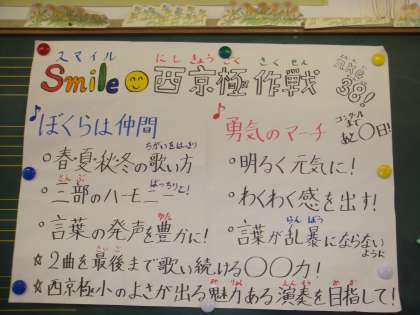 スマイル にしきょうごく さくせん
Smile 西京極作戦
38!
コンクールまで
あと〇日!
♪ぼくらは仲間
ちがいをはっきり
○春・夏・秋・冬の歌い方
さんぶ ばっちりと!
○三部のハーモニー
かた
○言葉の発声を豊かに!
♪勇気のマーチ
○明るく元気に!
○わくわく感を出す!
らんぼう
○言葉が乱暴にならないように
さいご
☆2曲を最後まで歌い続ける〇〇力!
みりょく えんそう めざ
☆西京極小のよさが出る魅力ある演奏を目指して!